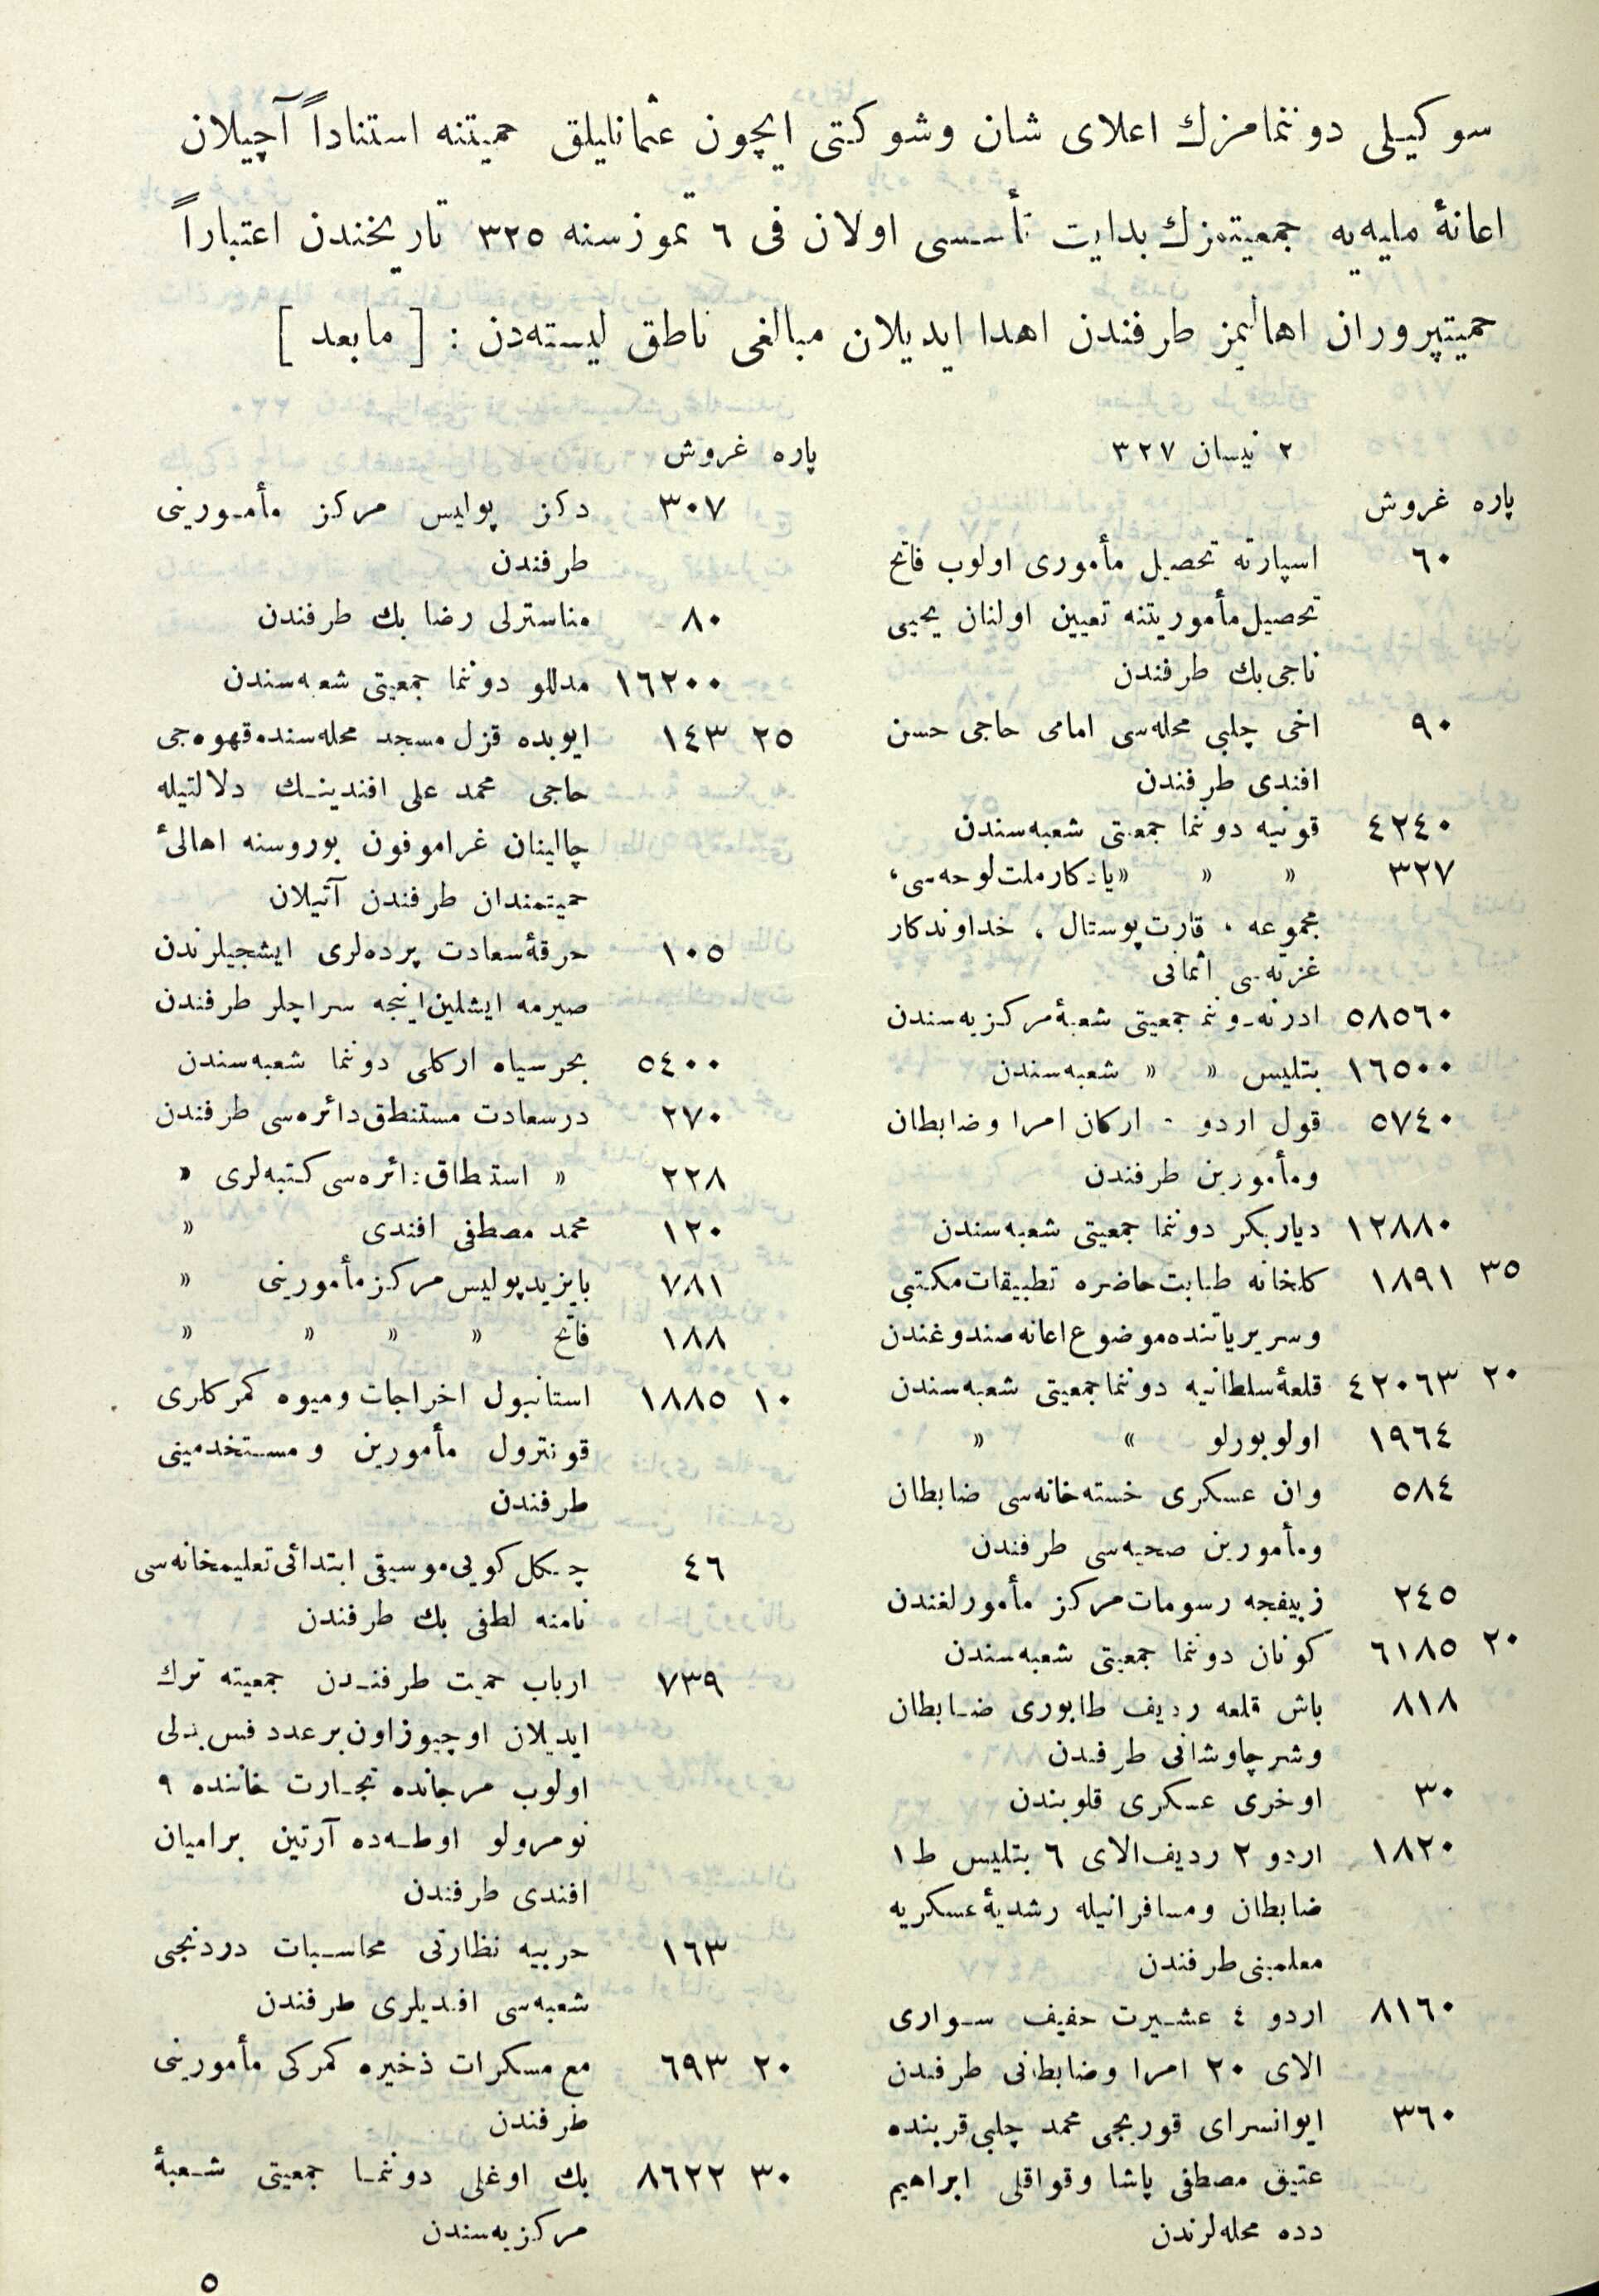 سوكیلی دوننمامزك اعلای شان وشوكتی ایچون عثمانلیلق حمیتنه استناداً آچیلان
اعانهٔ ملیه‌یه جمعیتمزك بدایت تأسسی اولان فی ٦ تموز سنه ٣٢٥ تاریخندن اعتباراً
حمیتپروران اهالیمز طرفندن اهدا ایدیلان مبالغی ناطق لیسته‌دن : [ مابعد ]
٢ نیسان ٣٢٧
پاره غروش
٦٠ اسپارته تحصیل مأموری اولوب فاتح
تحصیل مأموریتنه تعیین اولنان یحیی
ناجی بك طرفندن
٩٠ اخی چلبی محله‌سی امامی حاجی حسن
افندی طرفندن
٤٢٤٠ قونیه دوننما جمعیتی شعبه‌سندن
٣٢٧ » » «یادكار ملت لوحه‌سی،
مجموعه ، قارت پوستال ، خداوندكار
غزته‌سی اثمانی
٥٨٥٦٠ ادرنه دوننما جمعیتی شعبهٔ مركزیه‌سندن
١٦٥٠٠ بتلیس » » شعبه‌سندن
٥٧٤٠ قول اردو ٠ اركان امرا وضابطان
ومأمورین طرفندن
١٢٨٨٠ دیاربكر دوننما جمعیتی شعبه‌سندن
٣٥ ١٨٩١ كلخانه طبابت حاضره تطبیقات مكتبی
وسریریاتنده موضوع اعانه صندوغندن
٢٠ ٤٢٠٦٣ قلعهٔ سلطانیه دوننما جمعیتی شعبه‌سندن
١٩٦٤ اولوبورلو » »
٥٨٤ وان عسكری خسته‌خانه‌سی ضابطان
ومأمورین صحیه‌سی طرفندن
٢٤٥ زبیفجه رسومات مركز مأمورلغندن
٢٠ ٦١٨٥ كونان دوننما جمعیتی شعبه‌سندن
٨١٨ باش قلعه ردیف طابوری ضابطان
وشرچاوشانی طرفندن
٣٠ اوخری عسكری قلوبندن
١٨٢٠ اردو ٢ ردیف الای ٦ بتلیس ط ١
ضابطان ومسافرانیله رشدیهٔ عسكریه
معلمینی طرفندن
٨١٦٠ اردو ٤ عشیرت خفیف سواری
الای ٢٠ امرا وضابطانی طرفندن
٣٦٠ ایوانسرای قوربجی محمد چلبی قربنده
عتیق مصطفی پاشا وقواقلی ابراهیم
دده محله‌لرندن
پاره غروش
٣٠٧ دكز پولیس مركز مأمورینی
طرفندن
٨٠ مناسترلی رضا بك طرفندن
١٦٢٠٠ مدللو دوننما جمعیتی شعبه‌سندن
٢٥ ١٤٣ ایوبده قزل مسجد محله‌سنده قهوه‌جی
حاجی محمد علی افندینك دلالتیله
چالینان غراموفون بوروسنه اهالیٔ
حمیتمندان طرفندن آتیلان
١٠٥ خرقهٔ سعادت پرده‌لری ایشجیلرندن
صیرمه ایشلین اینجه سراجلر طرفندن
٥٤٠٠ بحرسیاه اركلی دوننما شعبه‌سندن
٢٧٠ درسعادت مستنطق دائره‌سی طرفندن
٢٢٨ » استنطاق دائره‌سی كتبه‌لری »
١٢٠ محمد مصطفی افندی »
٧٨١ بایزید پولیس مركز مأمورینی »
١٨٨ فاتح » » » »
١٠ ١٨٨٥ استانبول اخراجات ومیوه كمركلری
قونترول مأمورین ومستخدمینی
طرفندن
٤٦ چنكل كویی موسیقی ابتدائی تعلیمخانه‌سی
نامنه لطفی بك طرفندن
٧٣٩ ارباب حمیت طرفندن جمعیته ترك
ایدیلان اوچیوز اون بر عدد فس بدلی
اولوب مرجانده تجارت خاننده ٩
نومرولو اوطه‌ده آرتین برامیان
افندی طرفندن
١٦٣ حربیه نظارتی محاسبات دردنجی
شعبه‌سی افندیلری طرفندن
٢٠ ٦٩٣ مع مسكرات ذخیره كمركی مأمورینی
طرفندن
٣٠ ٨٦٢٢ بك اوغلی دوننما جمعیتی شعبهٔ
مركزیه‌سندن
٥